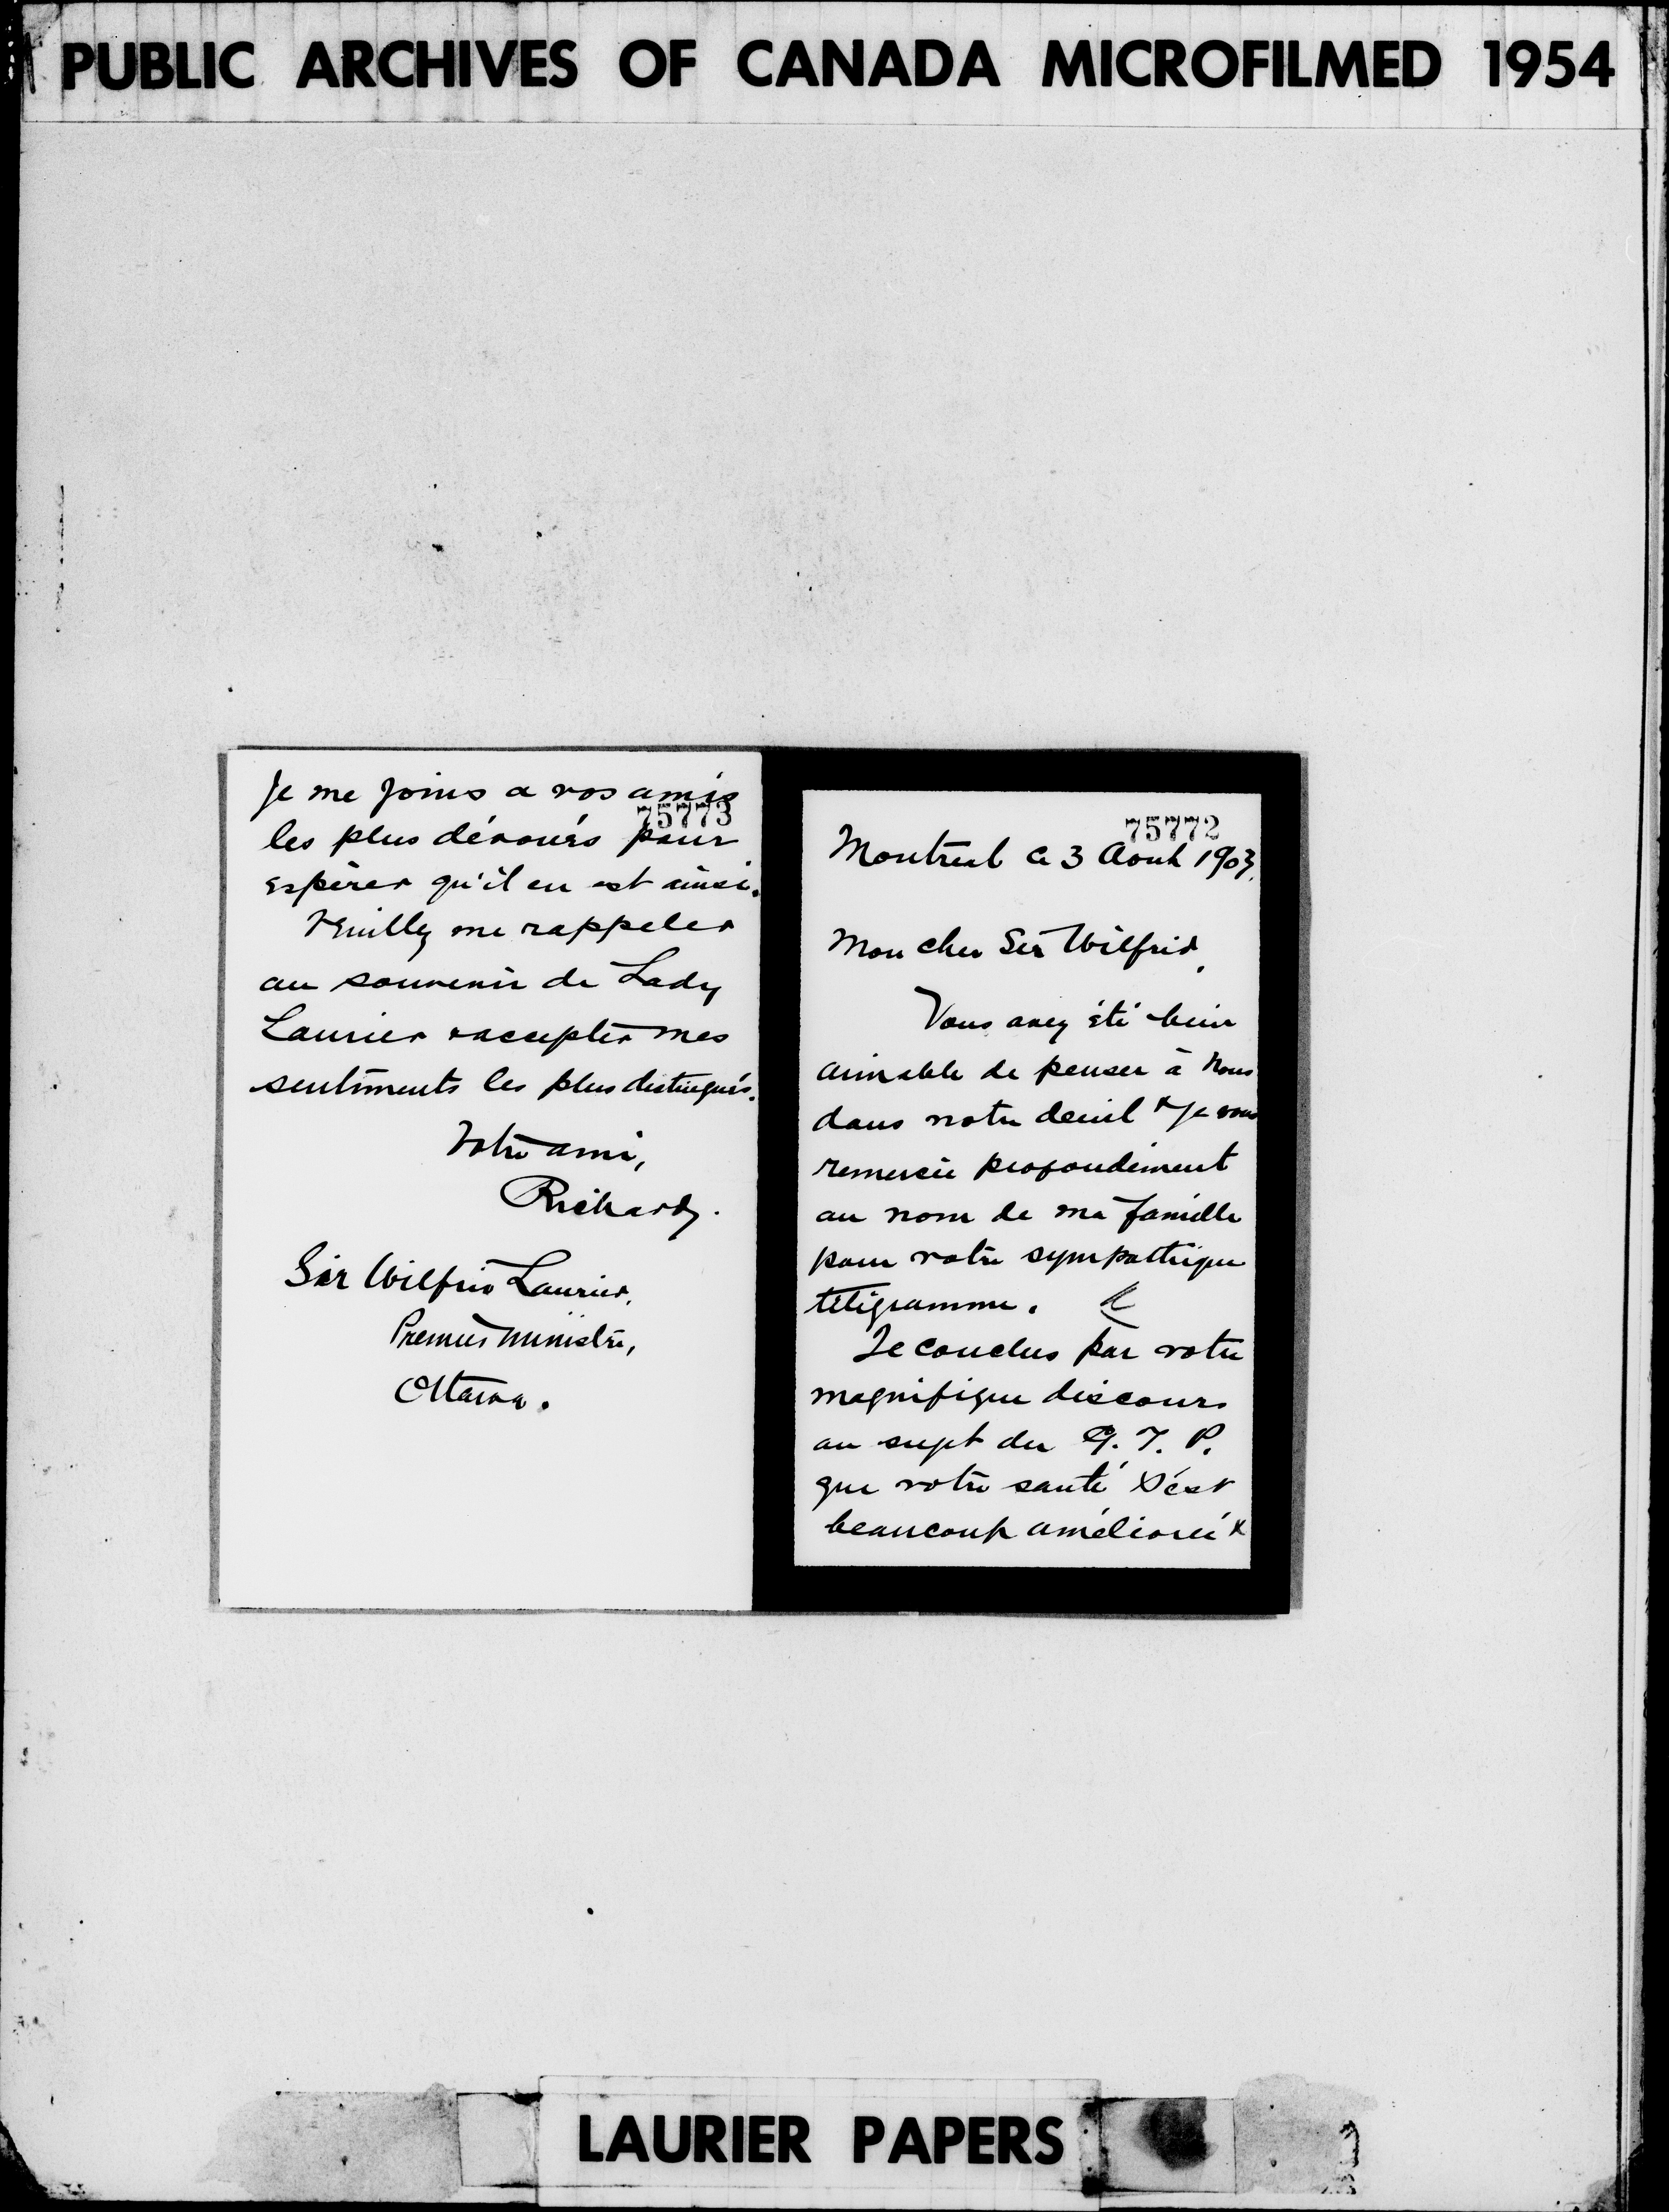 PUBLIC ARCHIVES OF CANADA MICROFILMED 1954
75772
Montreal ce 3 Aout 1903.
Mon cher Sir Wilfrid,
Vous avez été bien
aimable de penser à nous
dans notre deuil & je vous
remercie profondément
au nom de ma famille
pour votre sympathique
télégramme.
Je conclus par votre
magnifique discours
au sujet du G. T. P.
que votre santé s'est
beaucoup améliorée &
je me joins a vos amis
75773
les plus dévoués pour
espérer qu'il en est ainsi.
Veuillez me rappeler
au souvenir de Lady
Laurier & accepter mes
sentiments les plus distingués.
Votre ami,
Sir Wilfrid Laurier,
Premier Ministre,
Ottawa.
LAURIER PAPERS